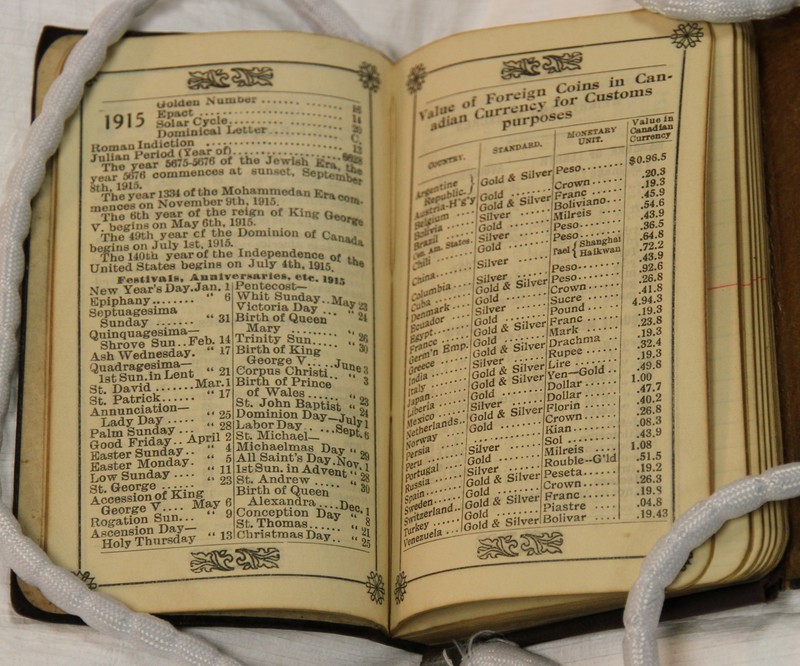 1915
Golden Number ....... 16
Epact ....... 14
Solar Cycle ....... 20
Dominical Letter ....... C.
Roman Indiction ....... 13
Julian Period (Year of) ....... 6628
The year 5675-5676 of the Jewish Era, the
year 5676 commences at sunset, September
8th, 1915.
The year 1334 of the Mohammedan Era com-
mences on November 9th, 1915.
The 6th year of the reign of King George
V. begins on May 6th, 1915.
The 49th year cf the Dominion of Canada
begins on July 1st, 1915.
The 140th year of the Independence of the
United States begins on July 4th, 1915.
Festivals, Anniversaries, etc. 1915
New Year's Day. Jan. 1
Epiphany ........ " 6
Septuagesima
Sunday ....... " 31
Quinquagesima—
Shrove Sun.. Feb. 14
Ash Wednesday. " 17
Quadragesima—
1st Sun. in Lent " 21
St. David ....... Mar. 1
St. Patrick ...... " 17
Annunciation—
Lady Day ..... " 25
Palm Sunday ... " 28
Good Friday.. April 2
Easter Sunday.. " 4
Easter Monday. " 5
Low Sunday .... " 11
St. George ..... " 23
Accession of King
George V.... May 6
Rogation Sun... " 9
Ascension Day—
Holy Thursday " 13
Pentecost—
Whit Sunday.. May 23
Victoria Day ... " 24
Birth of Queen
Mary ....... " 26
Trinity Sun..... " 30
Birth of King
George V..... June 3
Corpus Christi.. " 3
Birth of Prince
of Wales ..... " 23
St. John Baptist " 24
Dominion Day—July 1
Labor Day .... Sept. 6
St. Michael—
Michaelmas Day " 29
All Saint's Day. Nov. 1
1st Sun. in Advent " 28
St. Andrew .... " 30
Birth of Queen
Alexandra .... Dec. 1
Conception Day " 8
St. Thomas ..... " 21
Christmas Day.. " 25
Value of Foreign Coins in Can-
adian Currency for Customs
purposes
COUNTRY. STANDARD. MONETARY UNIT. Value in Canadian Currency
Argentine Republic. } Gold & Silver Peso ...... $0.96.5
Austria-H'g'y Gold ...... Crown ...... .20.3
Belgium .... Gold & Silver Franc ...... .19.3
Bolivia .... Silver ...... Boliviano.. .45.9
Brazil ..... Gold ...... Milreis .... .54.6
Cen. Am. States. Silver ...... Peso ...... .43.9
Chili ...... Gold ...... Peso ...... .36.5
China ...... Silver ...... Tael { Shanghai .64.8
Haikwan .72.2
Columbia .... Silver ...... Peso ...... .43.9
Cuba ...... Gold & Silver Peso ...... .92.6
Denmark .... Gold ...... Crown ...... .26.8
Ecuador .... Silver ...... Sucre ...... .41.8
Egypt ...... Gold ...... Pound ...... 4.94.3
France ..... Gold & Silver Franc ...... .19.3
Germ'n Emp. Gold ...... Mark ...... .23.8
Greece ..... Gold & Silver Drachma .. .19.3
India ...... Silver ...... Rupee ...... .32.4
Italy ...... Gold & Silver Lire ...... .19.3
Japan ...... Gold & Silver Yen—Gold .. .49.8
Liberia .... Gold ...... Dollar ..... 1.00
Mexico ..... Silver ...... Dollar ..... .47.7
Netherlands.. Gold & Silver Florin ..... .40.2
Norway .... Gold ...... Crown ...... .26.8
Persia ..... Silver ...... Kian ...... .08.3
Peru ...... Silver ...... Sol ...... .43.9
Portugal .... Gold ...... Milreis .... 1.08
Russia ..... Silver ...... Rouble--G'ld .51.5
Spain ...... Gold & Silver Peseta ..... .19.2
Sweden ..... Gold ...... Crown ...... .26.3
Switzerland.. Gold & Silver Franc ...... .19.3
Turkey ..... Gold ...... Piastre .... .04.8
Venezuela ... Gold & Silver Bolivar .... .19.43